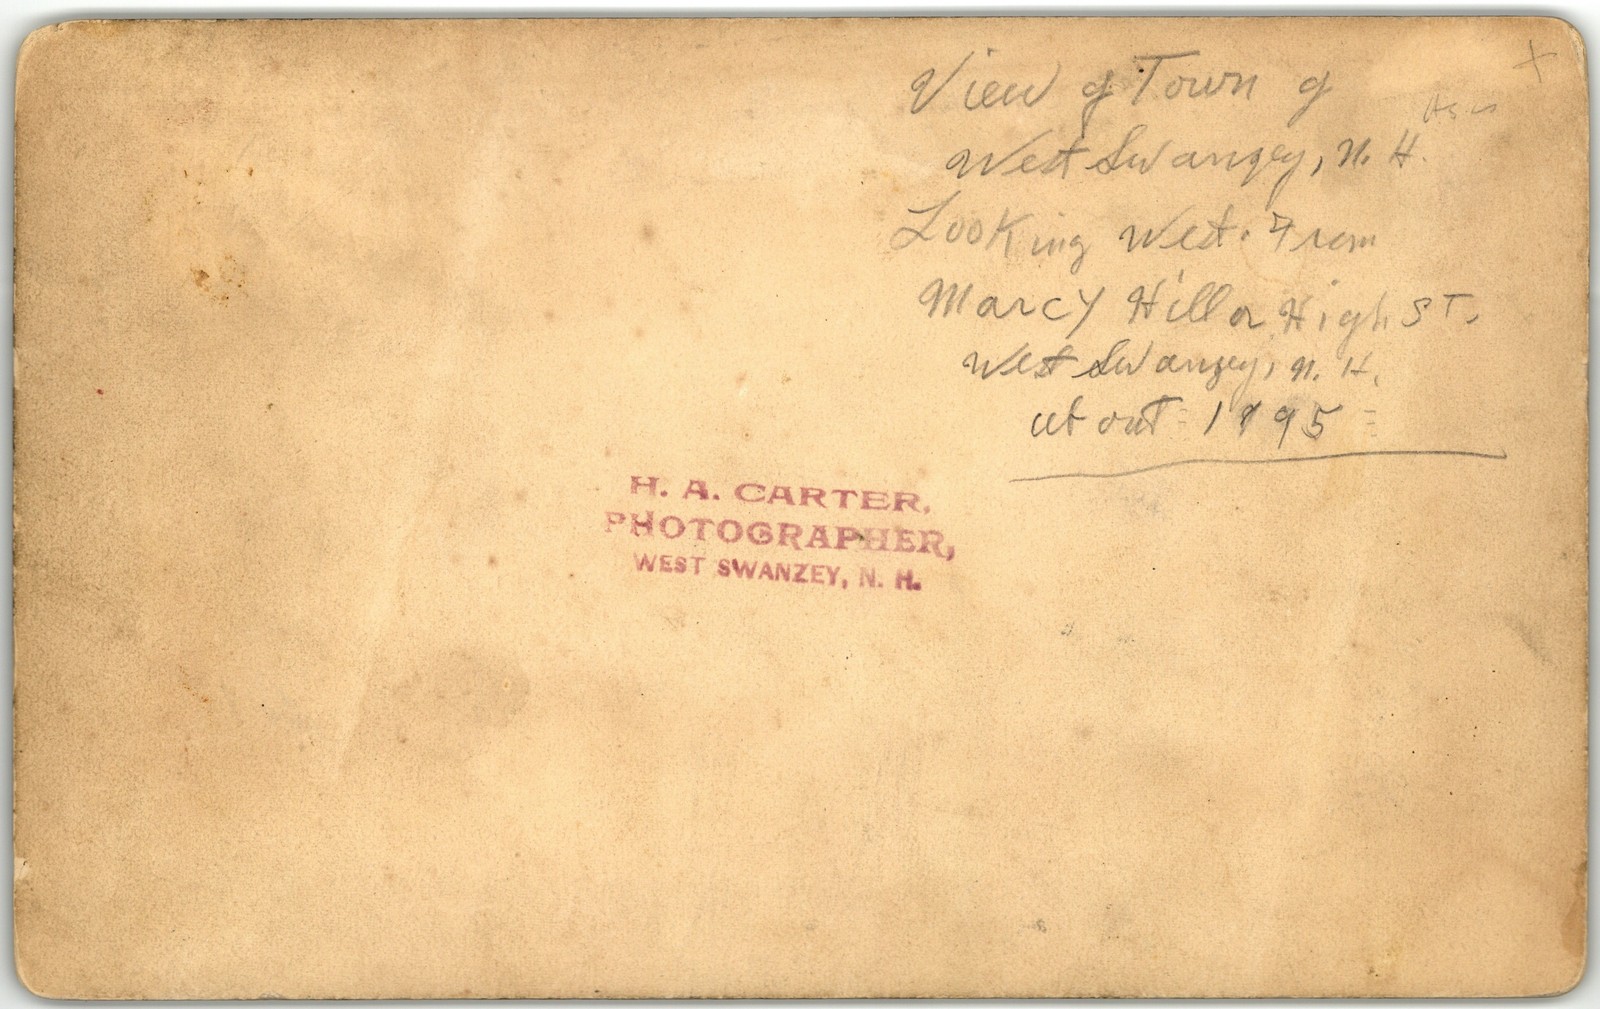 View of Town of
West Swanzey, N. H.
Looking West. From
Marcy Hill or High ST.
West Swanzey, N. H.
about = 1895 =
H. A. CARTER,
PHOTOGRAPHER,
WEST SWANZEY, N. H.